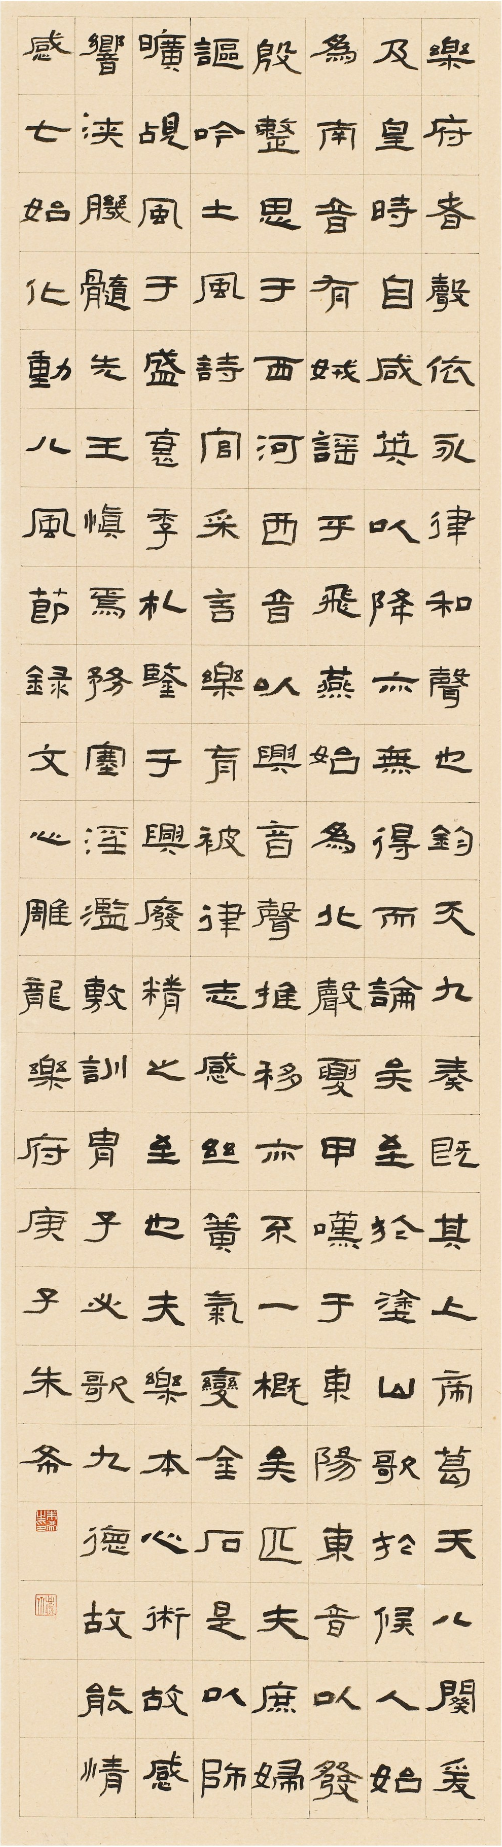 樂府者聲依永律和聲也鈞天九奏既其上帝葛天八闋爰
及皇時自咸英以降亦無得而論矣至於塗山歌於候人始
為南音有娀謠乎飛燕始為北聲夏甲嘆于東陽東音以發
殷整思于西河西音以興音聲推移亦不一概矣匹夫庶婦
謳吟土風詩官采言樂育被律志感絲簧氣變金石是以師
曠覘風于盛衰季札鑒于興廢精之至也夫樂本心術故感
響浹肌髓先王慎焉務塞淫濫敷訓胄子必歌九德故能情
感七始化動八風節録文心雕龍樂府庚子朱